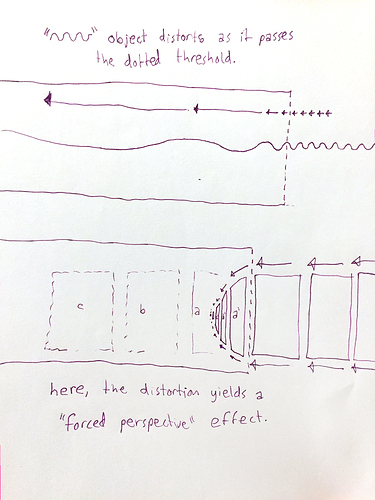 "〰" object distorts as it passes
the dotted threshold.
c
b
a
a'
here, the distortion yields a
"forced perspective" effect.